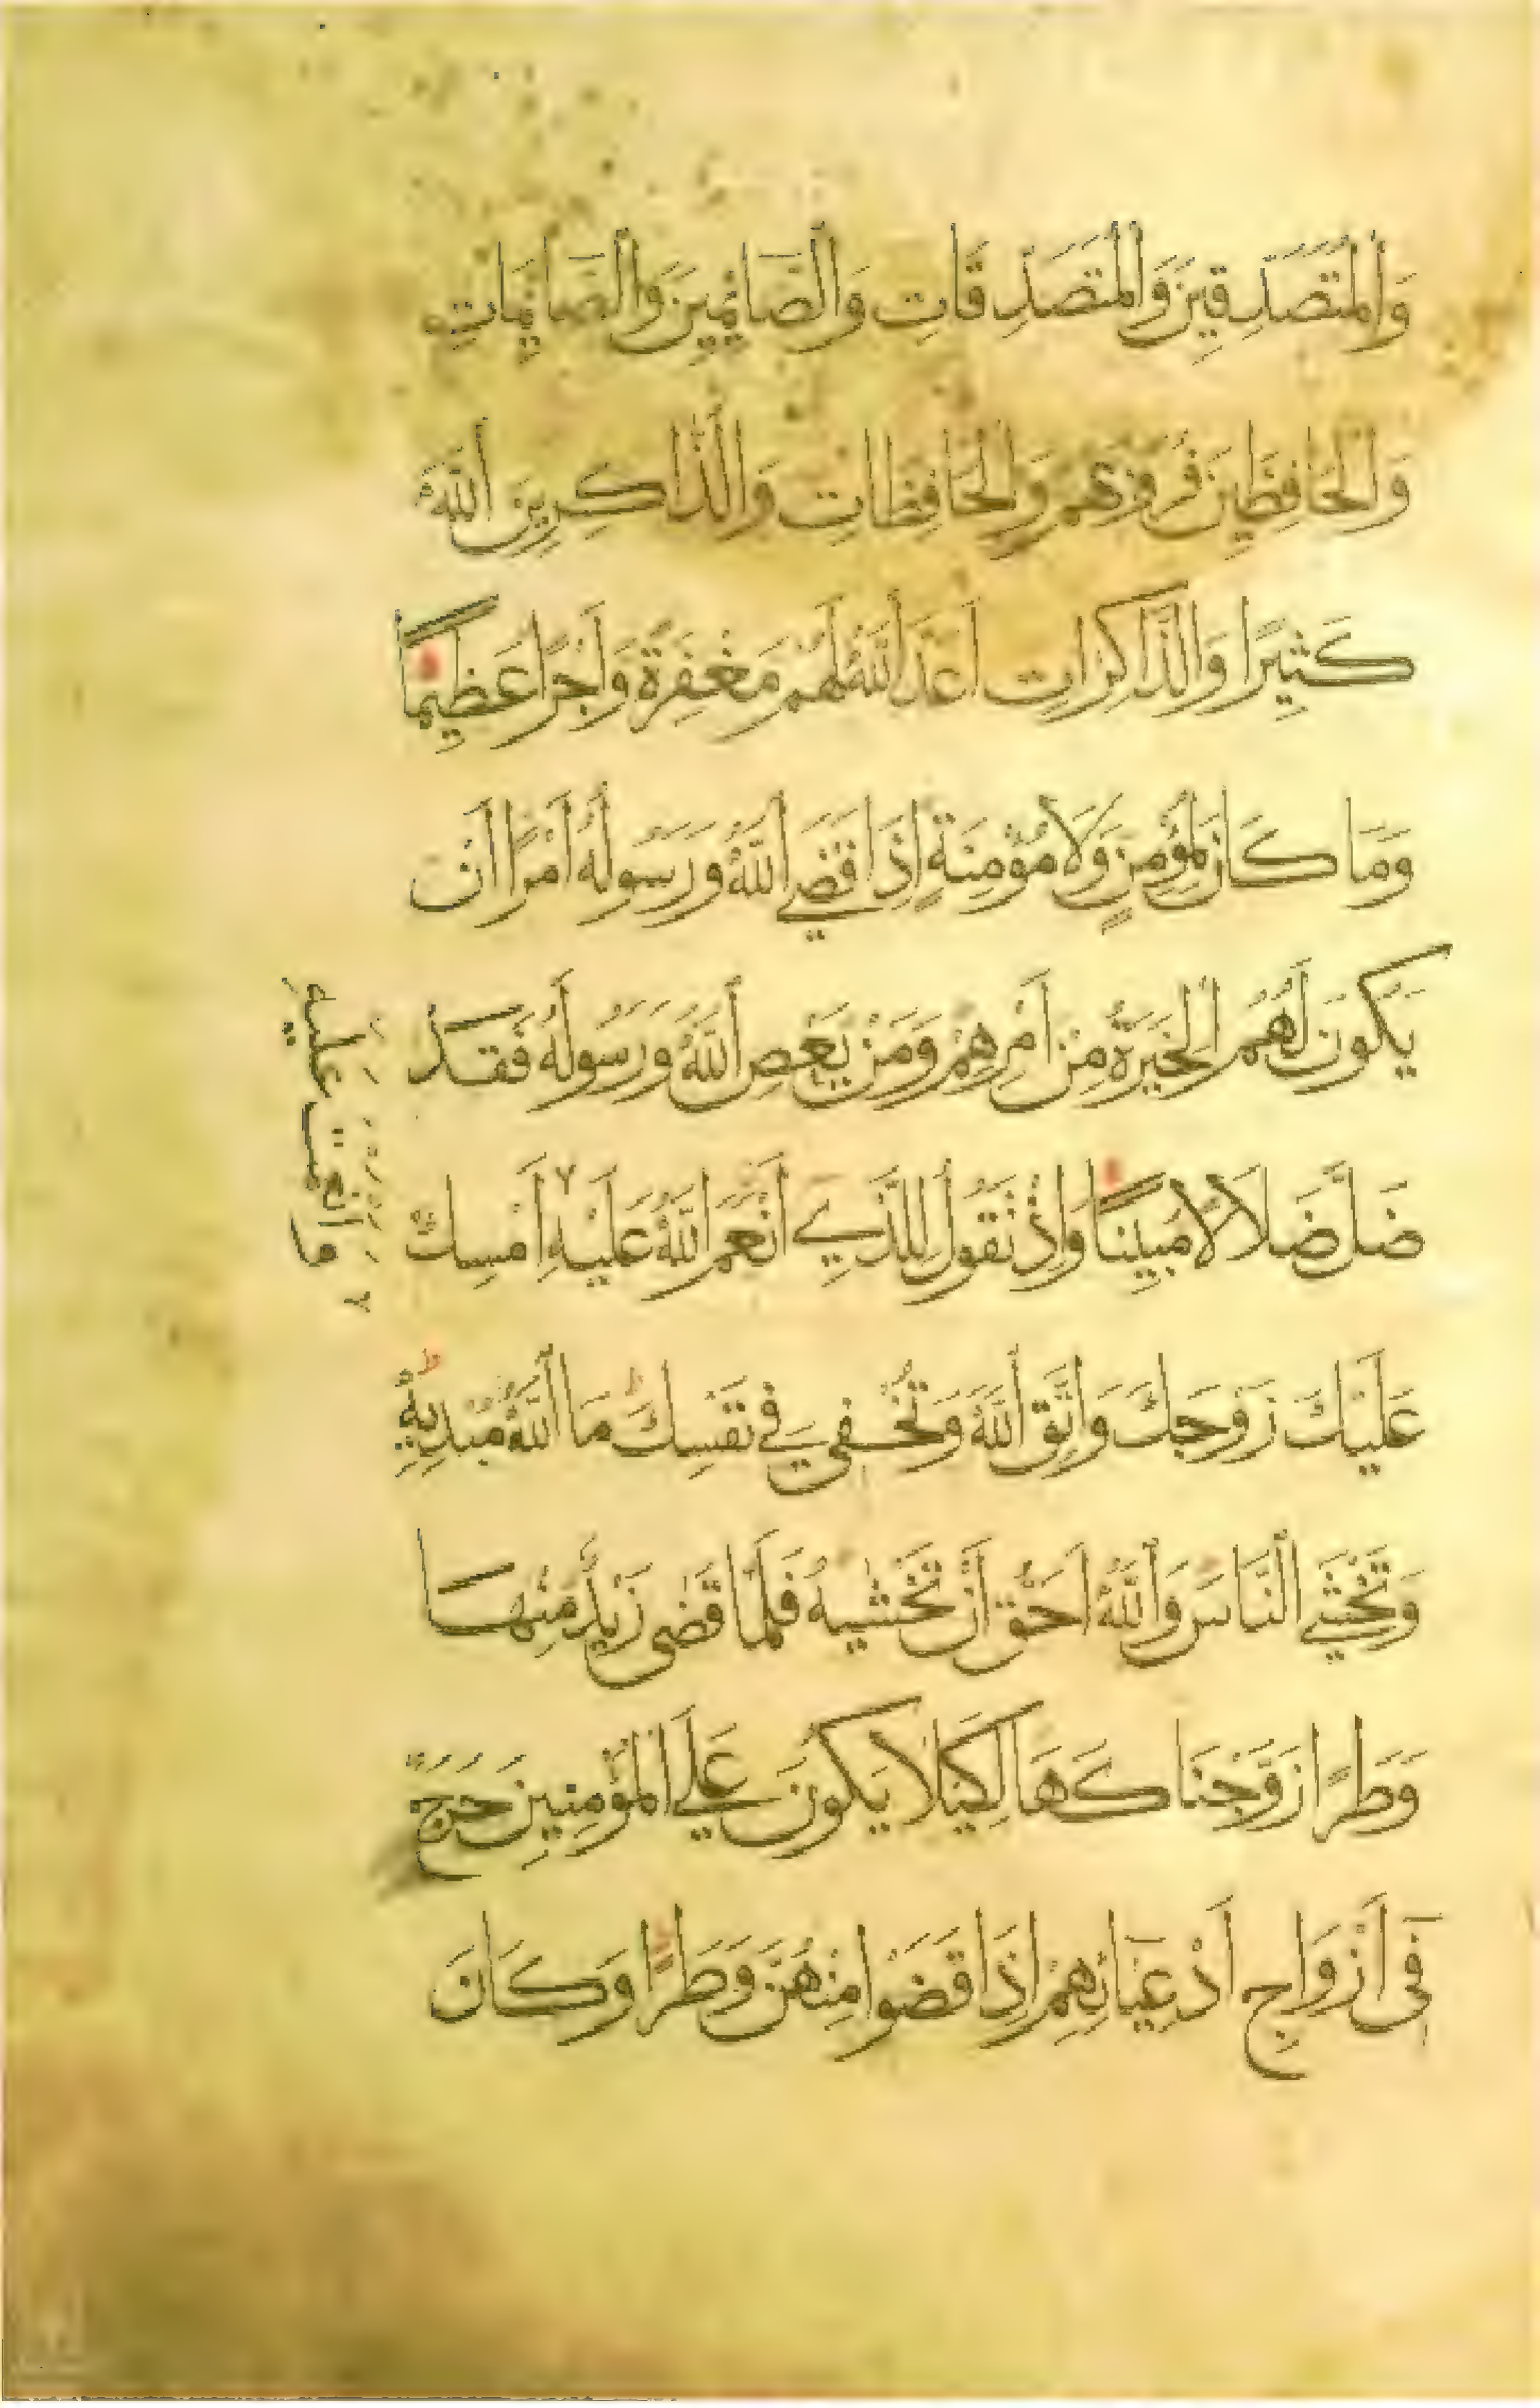 وَالْمُتَصَدِّقِينَ وَالْمُتَصَدِّقَاتِ وَالصَّائِمِينَ وَالصَّائِمَاتِ
وَالْحَافِظِينَ فُرُوجَهُمْ وَالْحَافِظَاتِ وَالذَّاكِرِينَ اللَّهَ
كَثِيرًا وَالذَّاكِرَاتِ أَعَدَّ اللَّهُ لَهُمْ مَغْفِرَةً وَأَجْرًا عَظِيمًا
وَمَا كَانَ لِمُؤْمِنٍ وَلَا مُؤْمِنَةٍ إِذَا قَضَى اللَّهُ وَرَسُولُهُ أَمْرًا أَنْ
يَكُونَ لَهُمُ الْخِيَرَةُ مِنْ أَمْرِهِمْ وَمَنْ يَعْصِ اللَّهَ وَرَسُولَهُ فَقَدْ
ضَلَّ ضَلَالًا مُبِينًا وَإِذْ تَقُولُ لِلَّذِي أَنْعَمَ اللَّهُ عَلَيْهِ أَمْسِكْ
عَلَيْكَ زَوْجَكَ وَاتَّقِ اللَّهَ وَتُخْفِي فِي نَفْسِكَ مَا اللَّهُ مُبْدِيهِ
وَتَخْشَى النَّاسَ وَاللَّهُ أَحَقُّ أَنْ تَخْشَيهُ فَلَمَّا قَضَى زَيْدٌ مِنْهَا
وَطَرًا زَوَّجْنَاكَهَا لِكَيْلَا يَكُونَ عَلَى الْمُؤْمِنِينَ حَرَجٌ
فِي أَزْوَاجِ أَدْعِيَائِهِمْ إِذَا قَضَوْا مِنْهُنَّ وَطَرًا وَكَانَ
وَأَنْعَمْتَ عَلَيْهِ